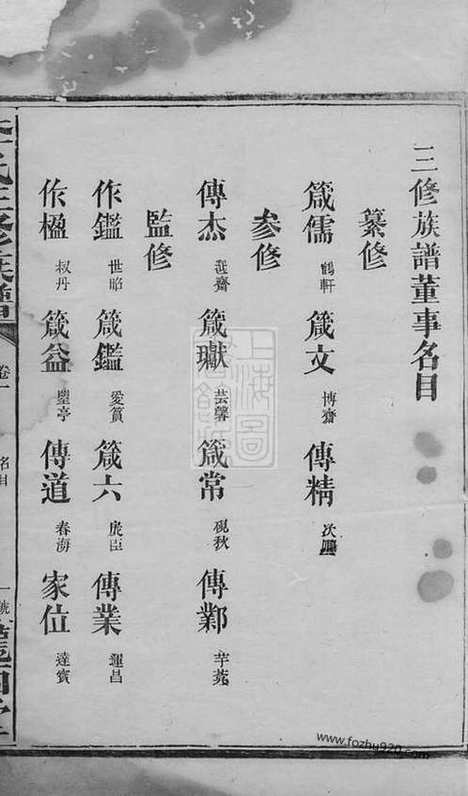 三修族譜董事名目
纂修
箴儒 鶴軒 箴文 博齋 傳精
参修
傳杰 箴瓛 芸馨 箴常 硯秋 傳鄴
監修
作鑑 世昭 箴鑑 愛賓 箴六 虎臣 傳業 運昌
作楹 叔丹 箴益 傳道 春海 家位 達賓
三修族譜
卷一
名目
www.fozhy920.com